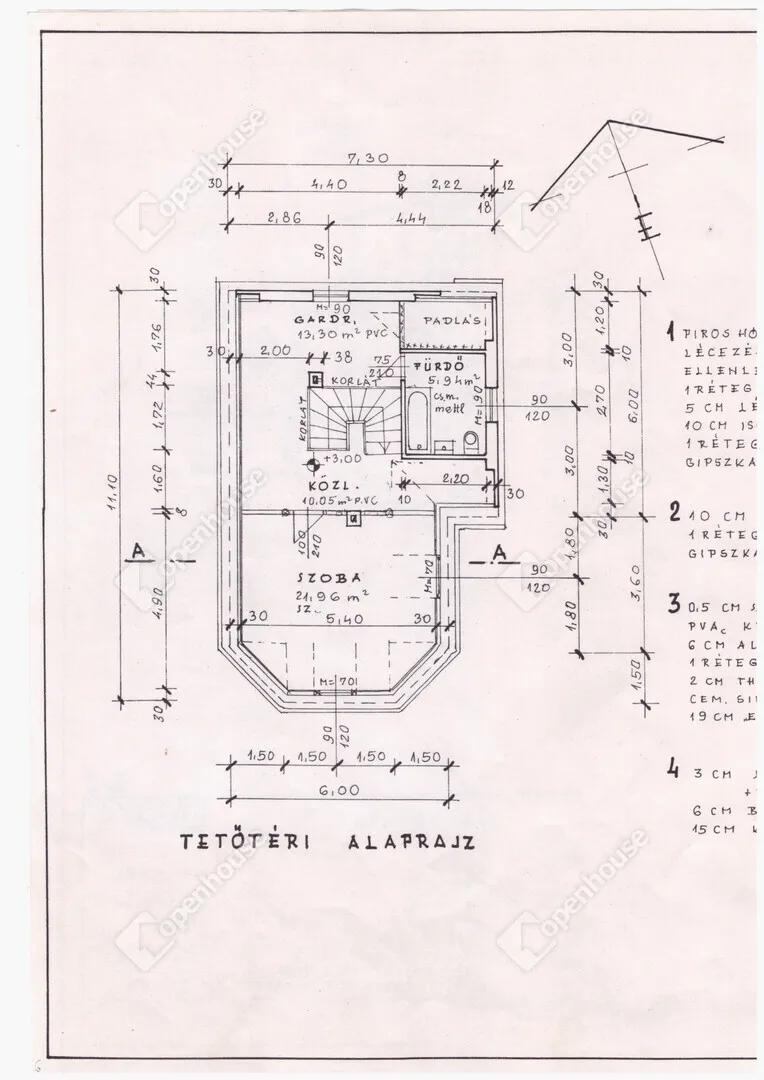 7,30
30
4,40
8
2,22
12
18
2,86
4,44
90
120
30
M=90
GARDR.
13,30 m² PVC
PADLÁS
30
2,00
38
75
210
FÜRDŐ
5,94 m²
KORLÁT
KORLÁT
CS.M.
mettl
M=90
90
120
+3,00
KÖZL.
10,05 m² P.VC
10
2,20
30
100
210
SZOBA
21,96 m²
SZ.
M=70
90
120
30
5,40
30
M=70
90
120
A
A
11,10
30
1,76
44
1,72
1,60
8
4,90
30
3,00
3,00
1,80
1,80
30
1,20
10
2,70
10
1,30
30
6,00
3,60
1,50
1,50
1,50
1,50
1,50
6,00
TETŐTÉRI ALAPRAJZ
1 PIROS HÓ
LÉCEZÉ
ELLENL
1 RÉTEG
5 CM LÉ
10 CM IS
1 RÉTEG
GIPSZKA
2 10 CM
1 RÉTEG
GIPSZKA
3 0,5 CM
PVAc K
6 CM AL
1 RÉTEG
2 CM TH
CEM. SI
19 CM „E
4 3 CM
+
6 CM B
15 CM
openhouse
openhouse
openhouse
openhouse
openhouse
openhouse